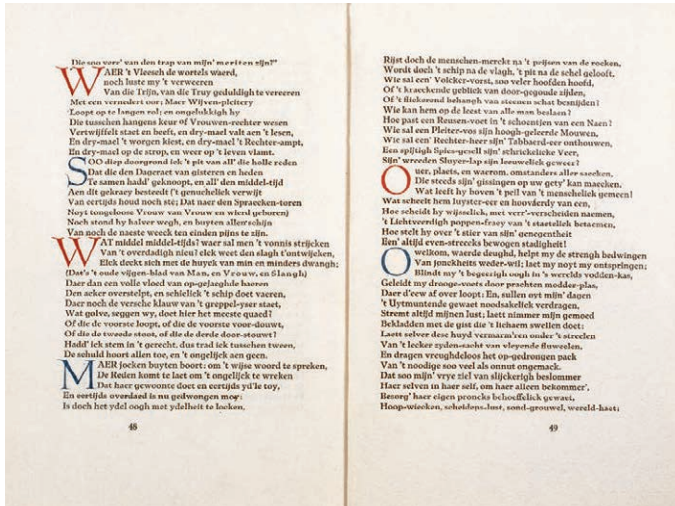 Die soo veer' van den trap van mijn' meriten zijn?"
WAER 't Vleesch de wortels waerd,
noch luste my 't verweeren
Van die Trijn, van die Truy geduldigh te vereeren
Met een vernedert oor; Maer Wijven-pleitery
Loopt op te langen rol; en ongelukkigh hy
Die tusschen hangens keur of Vrouwen-rechter wesen
Vertwijffelt staet en beeft, en dry-mael valt aen 't lesen,
En dry-mael 't worgen kiest, en dry-mael 't Rechter-ampt,
En dry-mael op de strop, en weer op 't leven vlamt.
SOO diep doorgrond ick 't pit van all' die holle reden
Dat die den Dageraet van gisteren en heden
Te samen hadd' geknoopt, en all' den middel-tijd
Aen dit gekracy besteedt ('t genuchelick verwijt
Van eertijds houd noch ste; Dat naer den Spraecken-toren
Noyt tongeloose Vrouw van Vrouw en wierd geboren)
Noch stond hy halver wegh, en buyten allen schijn
Van noch de naeste weeck ten einden pijns te zijn.
WAT middel middel-tijds? waer sal men 't vonnis strijcken
Van 't overdadigh nieu? elck weet den slagh t'ontwijcken,
Elck deckt sich met de huyck van min en minders dwangh;
(Dat's 't oude vijgen-blad van Man, en Vrouw, en Slangh)
Daer dan een volle vloed van op-gejaeghde baeren
Den acker overstelpt, en schielick 't schip doet vaeren,
Daer noch de versche klauw van 't greppel-yser staet,
Wat golve, seggen wy, doet hier het meeste quaed?
Of die de voorste loopt, of die de voorste voor-douwt,
Of die de tweede stoot, of die de derde door-stouwt?
Hadd' ick stem in 't gerecht, dus trad ick tusschen tween,
De schuld hoort allen toe, en 't ongelijck aen geen.
MAER jocken buyten boert: om 't wijse woord te spreken,
De Reden komt te laet om 't ongelijck te wreken
Dat haer gewoonte doet en eertijds yd'le toy,
En eertijds overdaed is nu gedwongen moy:
Is doch het ydel oogh met ydelheit te locken,
48
Rijst doch de menschen-merckt na 't prijsen van de rocken,
Wordt doch 't schip na de vlagh, 't pit na de schel gelooft.
Wie sal een' Volcker-vorst, soo veler hoofden hoofd,
Of 't kraeckende geblick van door-gegoude zijden,
Of 't flickerend behangh van steenen schat besnijden?
Wie kan hem op de leest van alle man beslaen?
Hoe past een Reusen-voet in 't schoentjen van een Naen?
Wie sal een Pleiter-vos sijn hoogh-geleerde Mouwen,
Wie sal een' Rechter-heer sijn' Tabbaerd-eer onthouwen,
Een spijtigh Spies-gesell sijn' schrickelicke Veer,
Sijn' wreeden Sluyer-lap sijn leeuwelick geweer?
Ouer, plaets, en waerom, omstanders aller saecken,
Die steeds sijn' gissingen op uw gety' kan maecken.
Wat leeft hy boven 't peil van 't menschelick gemeen!
Wat scheelt hem luyster-eer en hooverdy van een,
Hoe scheidt hy wijsselick, met verr'-verscheiden naemen,
't Lichtveerdigh poppen-fraey van 't staetelick betaemen,
Hoe stelt hy over 't stier van sijn' genegentheit
Een' altijd even-streecks bewogen stadigheit!
O welkom, waerde deughd, helpt my de strengh bedwingen
Van jonckheits weder-wil; laet my noyt my ontspringen;
Blindt my 't begeerigh oogh in 's werelds vodden-kas,
Geleidt my drooge-voets door prachten modder-plas,
Daer d'eew af over loopt: En, sullen oyt mijn' dagen
't Uytmuntende gewaet noodsakelick verdragen,
Stremt altijd mijnen lust; laett nimmer mijn gemoed
Bekladden met de gist die 't lichaem swellen doet:
Laett selver dese huyd vermarm'ren onder 't streelen
Van 't lecker zyden-sacht van vleyende fluweelen,
En dragen vreughdeloos het op-gedrongen pack
Van 't noodige soo veel als onnut ongemack.
Dat soo mijn' vrye ziel van slijckerigh beslommer
Haer selven in haer self, om haer alleen bekommer',
Besorg' haer eigen proncks behoeffelick gewaet,
Hoop-wiecken, scheidens-lust, sond-grouwel, wereld-haet;
49